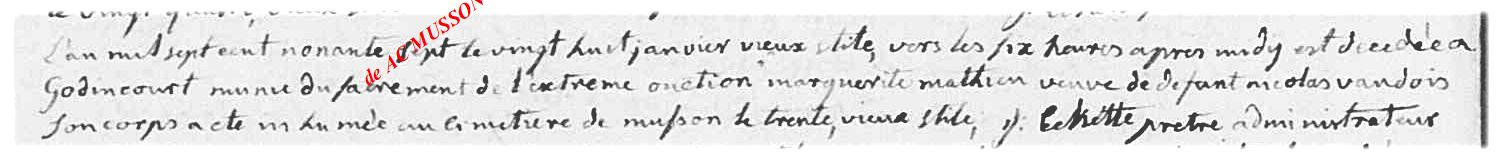 L'an mil sept cent nonante sept le vingt huit janvier vieux stile, vers les six heures apres midy est decedée a
Godincourt munie du sacrement de l'extreme onction marguerite mathieu veuve de defunt nicolas vaudois
son corps a eté inhumée au cimetiere de musson le trente, vieux stile, J: Eckette pretre administrateur
de AC MUSSON